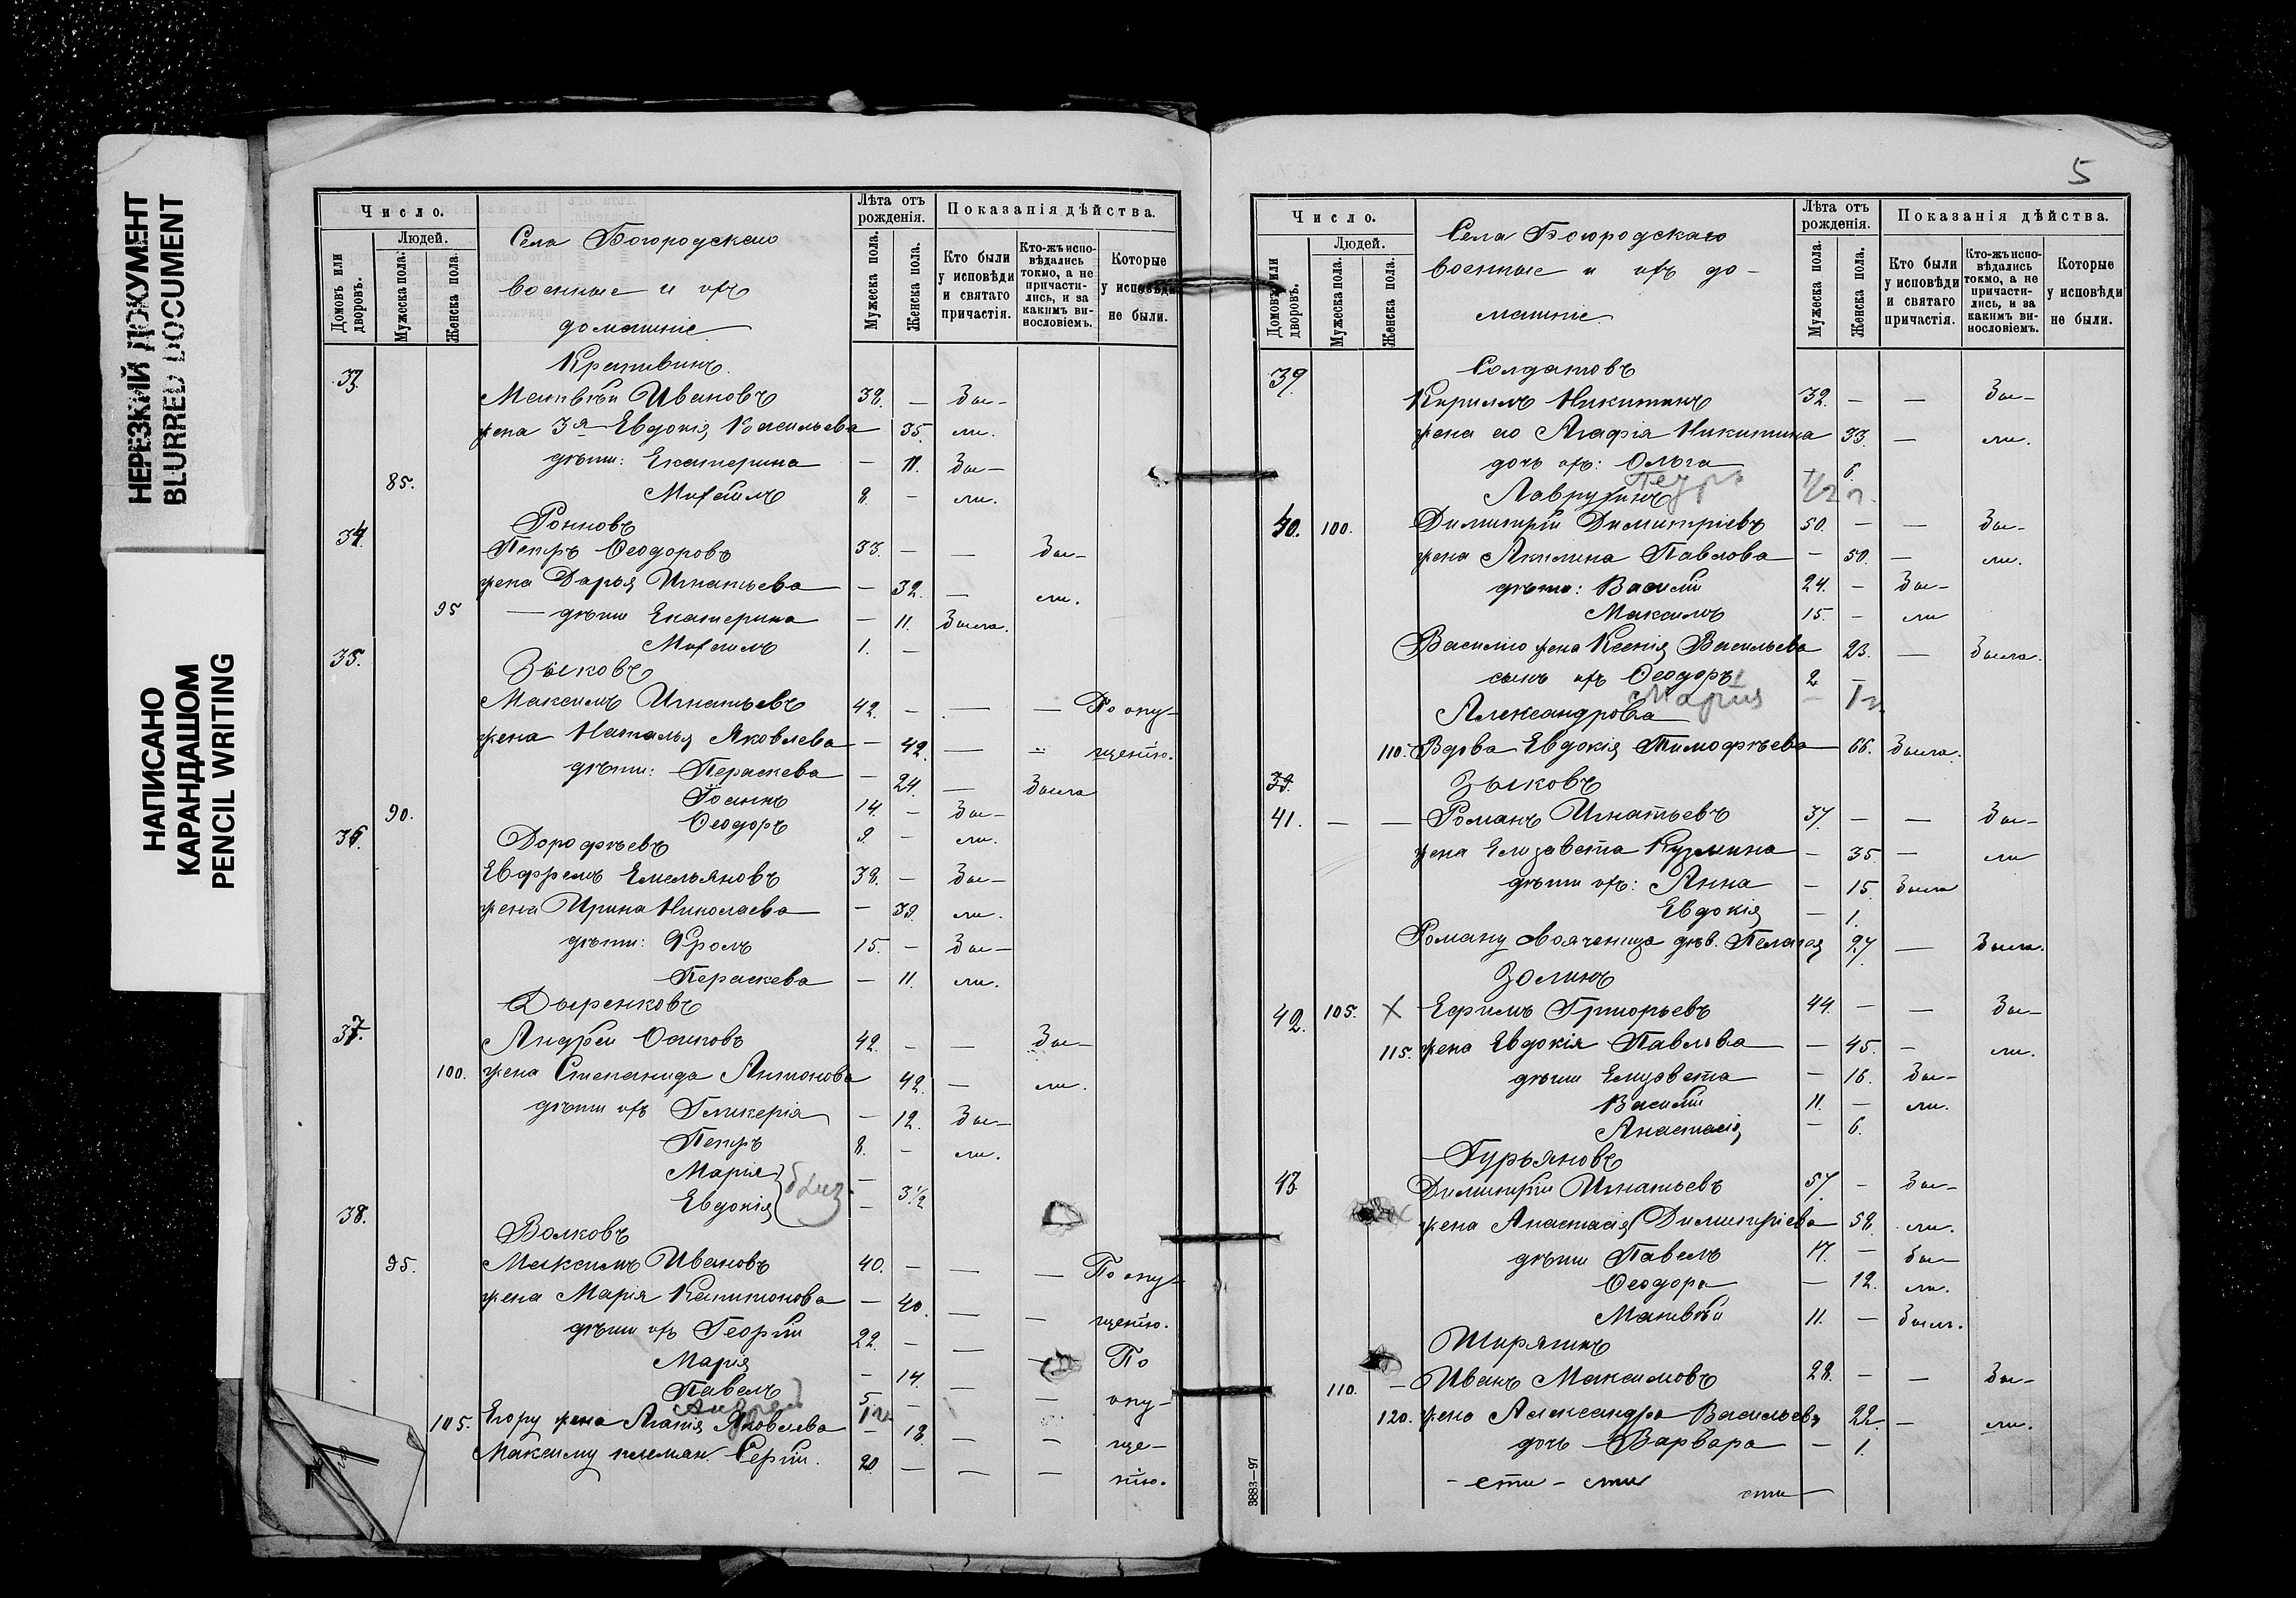 НЕРЕЗКИЙ ДОКУМЕНТ
BLURRED DOCUMENT
НАПИСАНО
КАРАНДАШОМ
PENCIL WRITING
Число.
Людей.
Домовъ или дворовъ.
Мужеска пола.
Женска пола.
Села Богородскаго
военные и ихъ
домашніе
Лѣта отъ рожденія.
Мужеска пола.
Женска пола.
Показанія дѣйства.
Кто были у исповѣди и святаго причастія.
Кто-жъ исповѣдались токмо, а не причастились, и за какимъ винословіемъ.
Которые у исповѣди не были.
33. Крапивинъ.
Матвѣй Ивановъ 38. — Бы-
жена 3я Евдокія Васильева 35. ли.
дѣти: Екатерина — 11. Бы-
85. Михаилъ 8. — ли.
34. Фоновъ
Петръ Ѳеодоровъ 33. — — Бы-
жена Дарья Игнатьева — 32. — ли.
95 — дѣти Екатерина — 11. Была.
Михаилъ 1. —
35. Зыковъ
Максимъ Игнатьевъ 42. — — — По опу-
жена Наталья Яковлева — 42. — — щенію.
дѣти: Параскева — 24. — Была
Іоаннъ 14. — Бы-
90. Ѳеодоръ 9. — ли.
36. Дорофѣевъ
Евфремъ Емельяновъ 38. — Бы-
жена Ирина Николаева — 39. ли.
дѣти: Фролъ 15. — Бы-
Параскева — 11. ли.
Дыренковъ
37. Андрей Осиповъ 42. — — Бы-
100. жена Степанида Антонова 42. — ли.
дѣти ихъ Гликерія — 12. Бы-
Петръ 8. — ли.
Марія — близ.
Евдокія — 3½
38. Волковъ
95. Максимъ Ивановъ 40. — — — По опу-
жена Марія Капитонова — 40. — — щенію.
дѣти ихъ Георгій 22. — — — По
Марія — 14. —
Павелъ 5. — — опу-
Андрей 1
105. Егору жена Агапія Яковлева — 18. — — ще-
Максиму племян. Сергій. 20. — — — нію.
5
Число.
Людей.
Домовъ или дворовъ.
Мужеска пола.
Женска пола.
Села Богородскаго
военные и ихъ до-
машніе.
Лѣта отъ рожденія.
Мужеска пола.
Женска пола.
Показанія дѣйства.
Кто были у исповѣди и святаго причастія.
Кто-жъ исповѣдались токмо, а не причастились, и за какимъ винословіемъ.
Которые у исповѣди не были.
39. Солдатовъ
Кириллъ Никитинъ 32. — — Бы-
жена его Агафія Никитина 33. — ли.
дочь ихъ: Ольга — 6.
Петръ 1/2 г.
Лаврухинъ
40. 100. Димитрій Димитріевъ 50. — — Бы-
жена Акилина Павлова — 50. — ли.
дѣти: Василій 24. — Бы-
Максимъ 15. — ли
Василію жена Ксенія Васильева 23. — Была.
сынъ ихъ Ѳеодоръ 2 —
Марія — 1 г.
Александрова
110. Вдова Евдокія Тимофѣева 66. Была.
39. Зыковъ
41. — — Романъ Игнатьевъ 37. — — Бы-
жена Елизавета Кузмина — 35. — ли
дѣти ихъ: Анна — 15. Была
Евдокія — 1.
Роману свояченица дѣв. Пелагея 27. — Была.
Золинъ
42. 105. X Ефимъ Григорьевъ 44. — — Бы-
115. жена Евдокія Павлова — 45. — ли.
дѣти Елизавета — 16. Бы-
Василій 11. — ли.
Анастасія — 6.
Гурьяновъ
43. Димитрій Игнатьевъ 57. — Бы-
жена Анастасія Димитріева 58. ли.
дѣти Павелъ 17. — бы-
Ѳеодора — 12. ли.
Матвѣй 11. — Былъ.
Ширягинъ
110. — Иванъ Максимовъ 28. — — Бы-
120. жена Александра Васильева 22 — ли.
дочь Варвара — 1.
3883—97